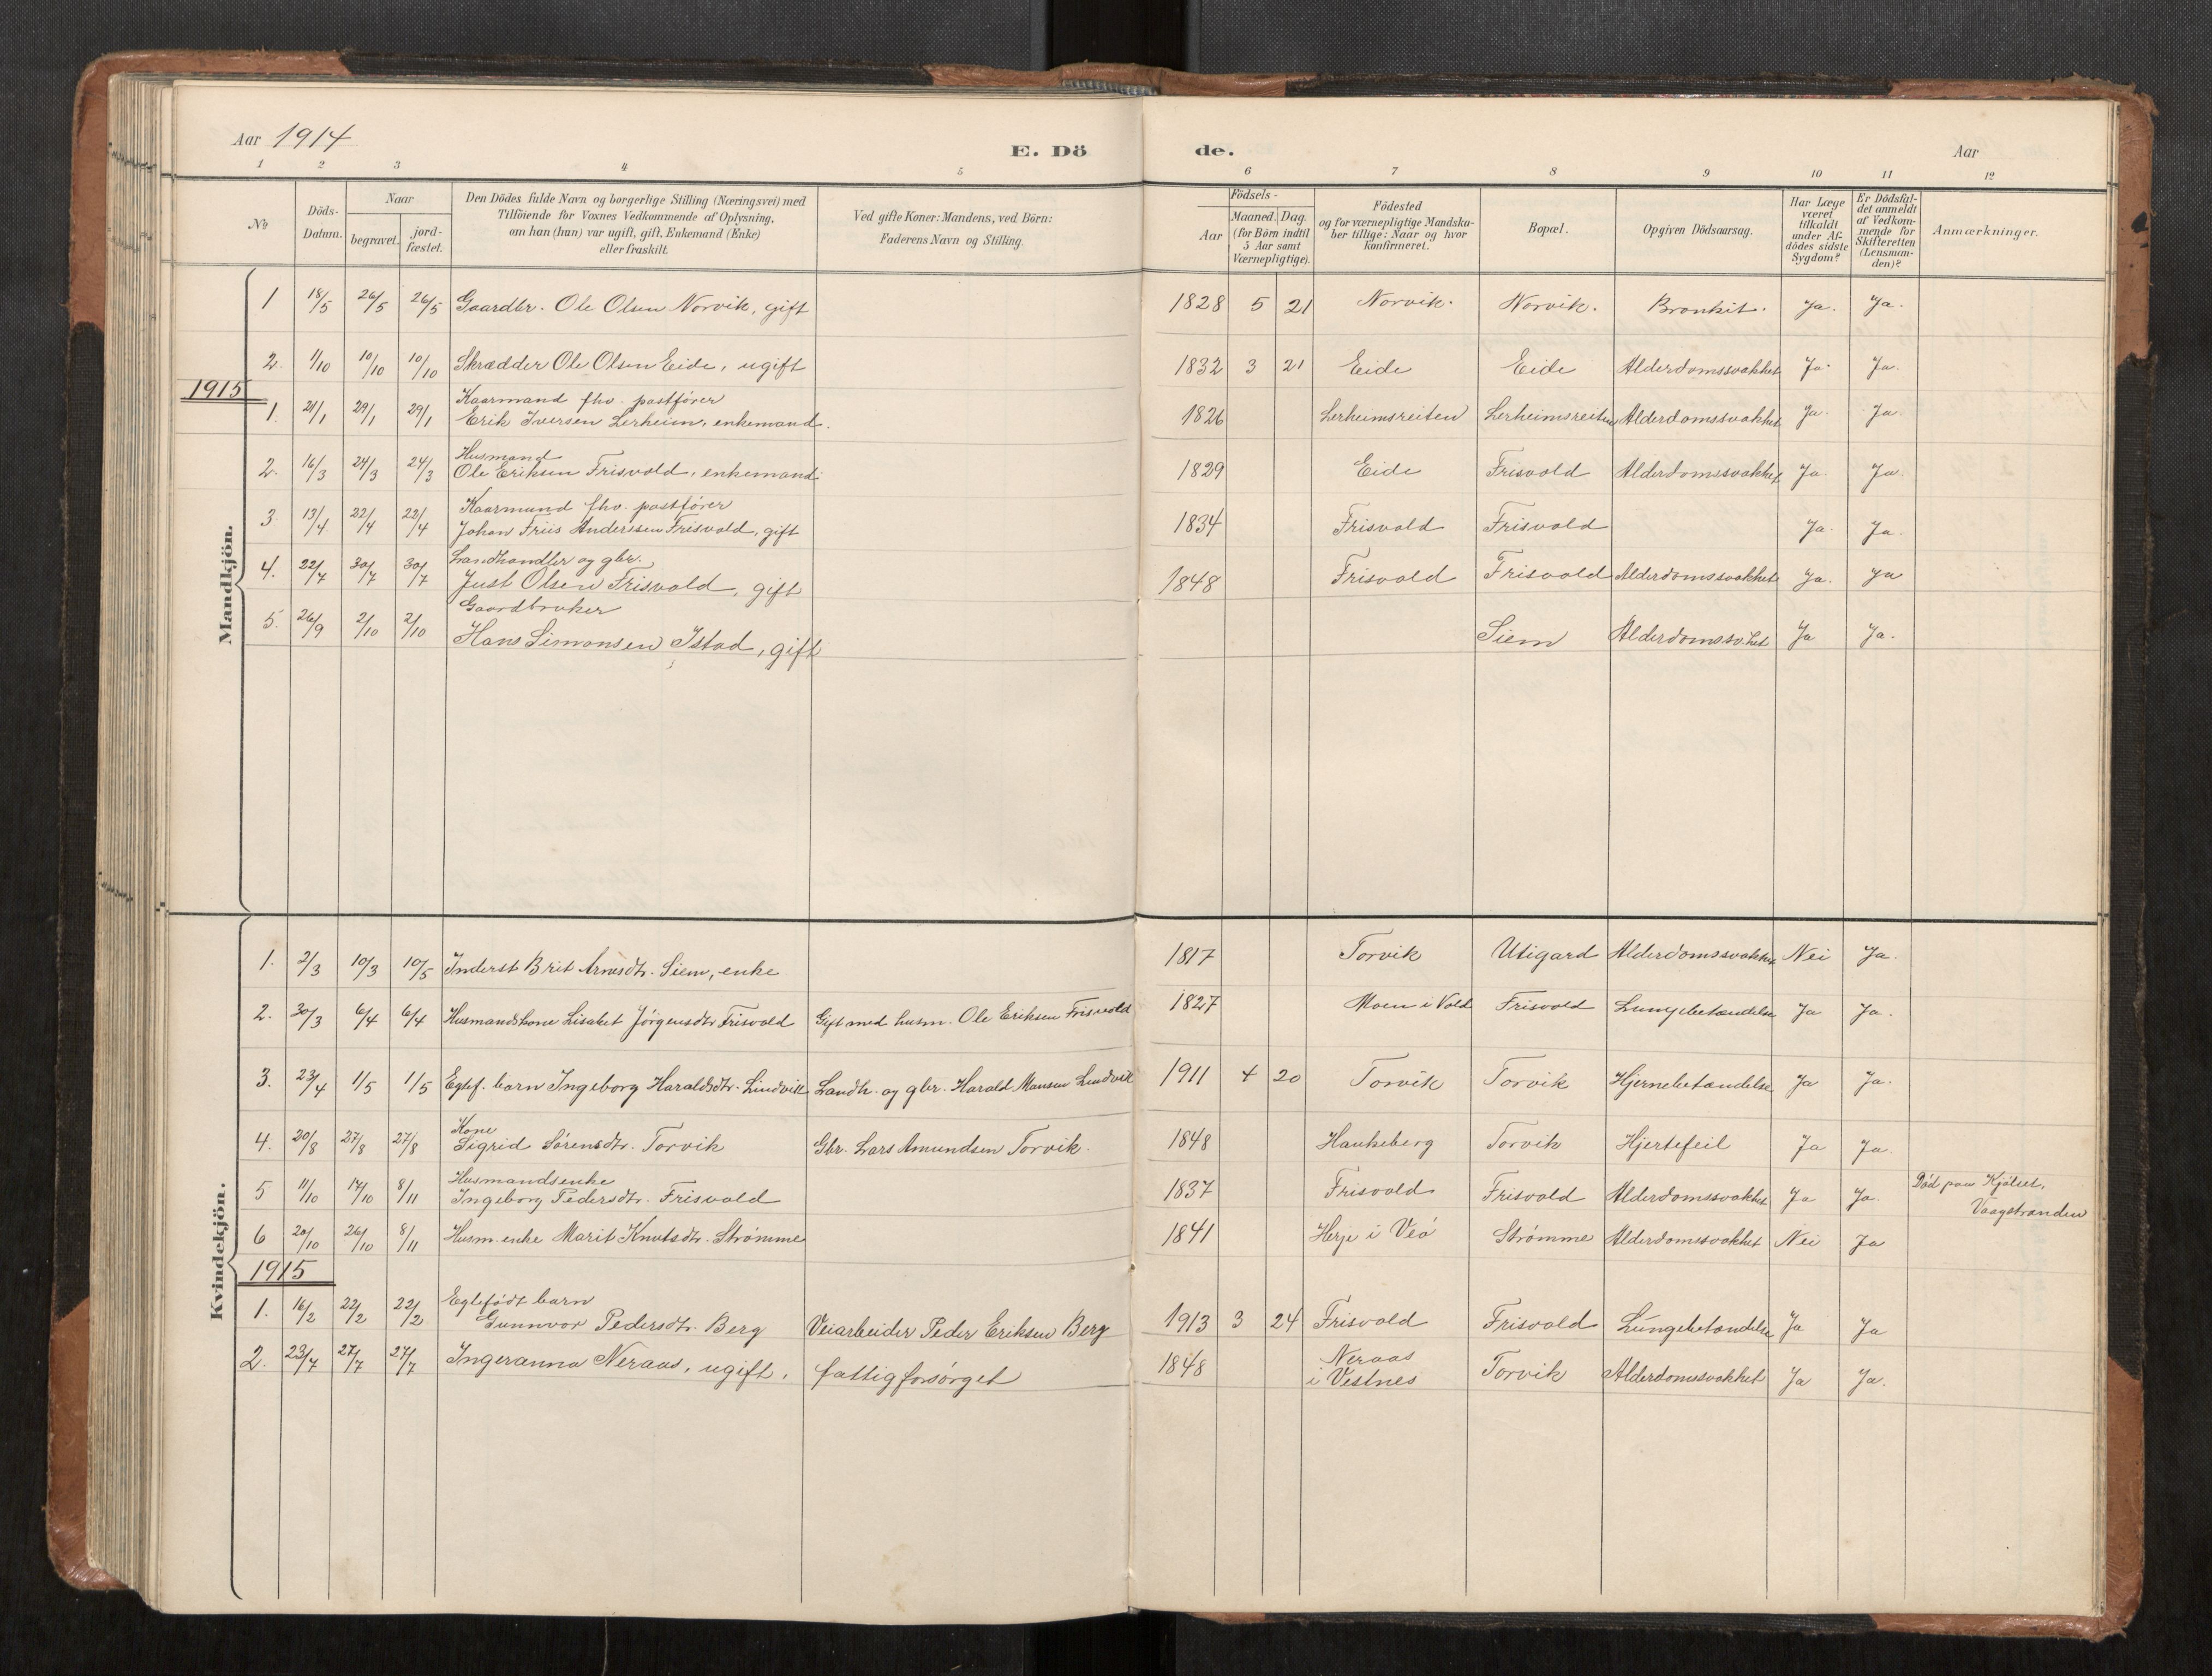 Aar 1914
E. Dö de.
Aar
1 2 3 4 5 6 7 8 9 10 11 12
No
Döds-Datum.
Naar
begravet.
jord-fæstet.
Den Dödes fulde Navn og borgerlige Stilling (Næringsvei) med
Tilföiende for Voxnes Vedkommende af Oplysning,
om han (hun) var ugift, gift, Enkemand (Enke)
eller fraskilt.
Ved gifte Koner: Mandens, ved Börn:
Faderens Navn og Stilling.
Födsels-
Aar
Maaned. Dag.
(for Börn indtil
5 Aar samt
Værnepligtige).
Födested
og for værnepligtige Mandska-
ber tillige: Naar og hvor
konfirmeret.
Bopæl.
Opgiven Dödsaarsag.
Har Læge
været
tilkaldt
under Af-
dödes sidste
Sygdom?
Er Dödsfal-
det anmeldt
af Vedkom-
mende for
Skifteretten
(Lensman-
den)?
Anmærkninger.
Mandkjön.
1 18/5 26/5 26/5 Gaardbr. Ole Olsen Norvik, gift 1828 5 21 Norvik. Norvik. Bronkit. Ja. Ja.
2. 1/10 10/10 10/10 Skrædder Ole Olsen Eide, ugift 1832 3 21 Eide Eide Alderdomssvakhet Ja. Ja.
1915
Kaarmand fhv. postfører
1. 21/1 29/1 29/1 Erik Iversen Lerheim, enkemand. 1826 Lerheimsreiten Lerheimsreiten Alderdomssvakhet Ja. Ja.
Husmand
2. 16/3 24/3 24/3 Ole Eriksen Frisvold, enkemand. 1829 Eide Frisvold Alderdomssvakhet Ja. Ja.
Kaarmand fhv. postfører
3. 13/4 22/4 22/4 Johan Friis Anderssen Frisvold, gift 1834 Frisvold Frisvold Ja. Ja.
Landhandler og gbr.
4. 22/7 30/7 30/7 Just Olsen Frisvold, gift 1848 Frisvold Frisvold Alderdomssvakhet Ja. Ja
Gaardbruker
5. 26/9 2/10 2/10 Hans Simonsen Istad, gift Siem Alderdomssv.het Ja Ja.
Kvindekjön.
1. 2/3 10/3 10/5 Inderst Brit Arnesdtr. Siem, enke 1817 Torvik Utigard Alderdomssvakhet Nei Ja.
2. 30/3 6/4 6/4 Husmandskone Lisabet Jørgensdtr Frisvold Gift med husm. Ole Eriksen Frisvold 1827 Moen i Vold Frisvold Lungebetændelse Ja Ja.
3. 23/4 1/5 1/5 Egtef. barn Ingeborg Haraldsdtr. Lindvik Landh. og gbr. Harald Monsen Lindvik 1911 4 20 Torvik Torvik Hjernebetændelse Ja Ja.
Kone
4. 20/8 27/8 27/8 Sigrid Sørensdtr. Torvik Gbr. Lars Amundsen Torvik. 1848 Haukeberg Torvik Hjertefeil Ja Ja.
Husmandsenke
5 11/10 17/10 8/11 Ingeborg Pedersdtr. Frisvold 1837 Frisvold Frisvold Alderdomssvakhet Ja Ja. Død paa Kjølset,
Vaagstranden
6 20/10 26/10 8/11 Husm. enke Marit Knutsdtr. Strømme 1841 Herje i Veø Strømme Alderdomssvakhet Nei Ja
1915
Egtefødt barn
1. 16/2 22/2 22/2 Gunnvor Pedersdtr. Berg Veiarbeider Peder Eriksen Berg 1913 3 24 Frisvold Frisvold Lungebetændelse Ja Ja
2. 23/7 27/7 27/7 Ingeranna Neraas, ugift, fattigforsørget 1848 Neraas
i Vestnes Torvik Alderdomssvakhet Ja Ja.